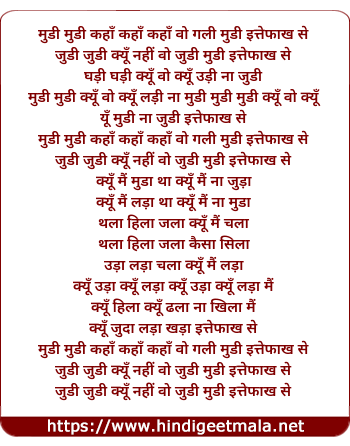 मुडी मुडी कहाँ कहाँ कहाँ वो गली मुडी इत्तेफाख से
जुडी जुडी क्यूँ नहीं वो जुडी मुडी इत्तेफाख से
घड़ी घड़ी क्यूँ वो क्यूँ उड़ी ना जुडी
मुडी मुडी क्यूँ वो क्यूँ लड़ी ना मुडी मुडी मुडी क्यूँ वो क्यूँ
यूँ मुडी ना जुडी इत्तेफाख से
मुडी मुडी कहाँ कहाँ कहाँ वो गली मुडी इत्तेफाख से
जुडी जुडी क्यूँ नहीं वो जुडी मुडी इत्तेफाख से
क्यूँ मैं मुडा था क्यूँ मैं ना जुड़ा
क्यूँ मैं लड़ा था क्यूँ मैं ना मुडा
थला हिला जला क्यूँ मैं चला
थला हिला जला कैसा सिला
उड़ा लड़ा चला क्यूँ मैं लड़ा
क्यूँ उड़ा क्यूँ लड़ा क्यूँ उड़ा क्यूँ लड़ा मैं
क्यूँ हिला क्यूँ ढला ना खिला मैं
क्यूँ जुदा लड़ा खड़ा इत्तेफाख से
मुडी मुडी कहाँ कहाँ कहाँ वो गली मुडी इत्तेफाख से
जुडी जुडी क्यूँ नहीं वो जुडी मुडी इत्तेफाख से
जुडी जुडी क्यूँ नहीं वो जुडी मुडी इत्तेफाख से
https://www.hindigeetmala.net